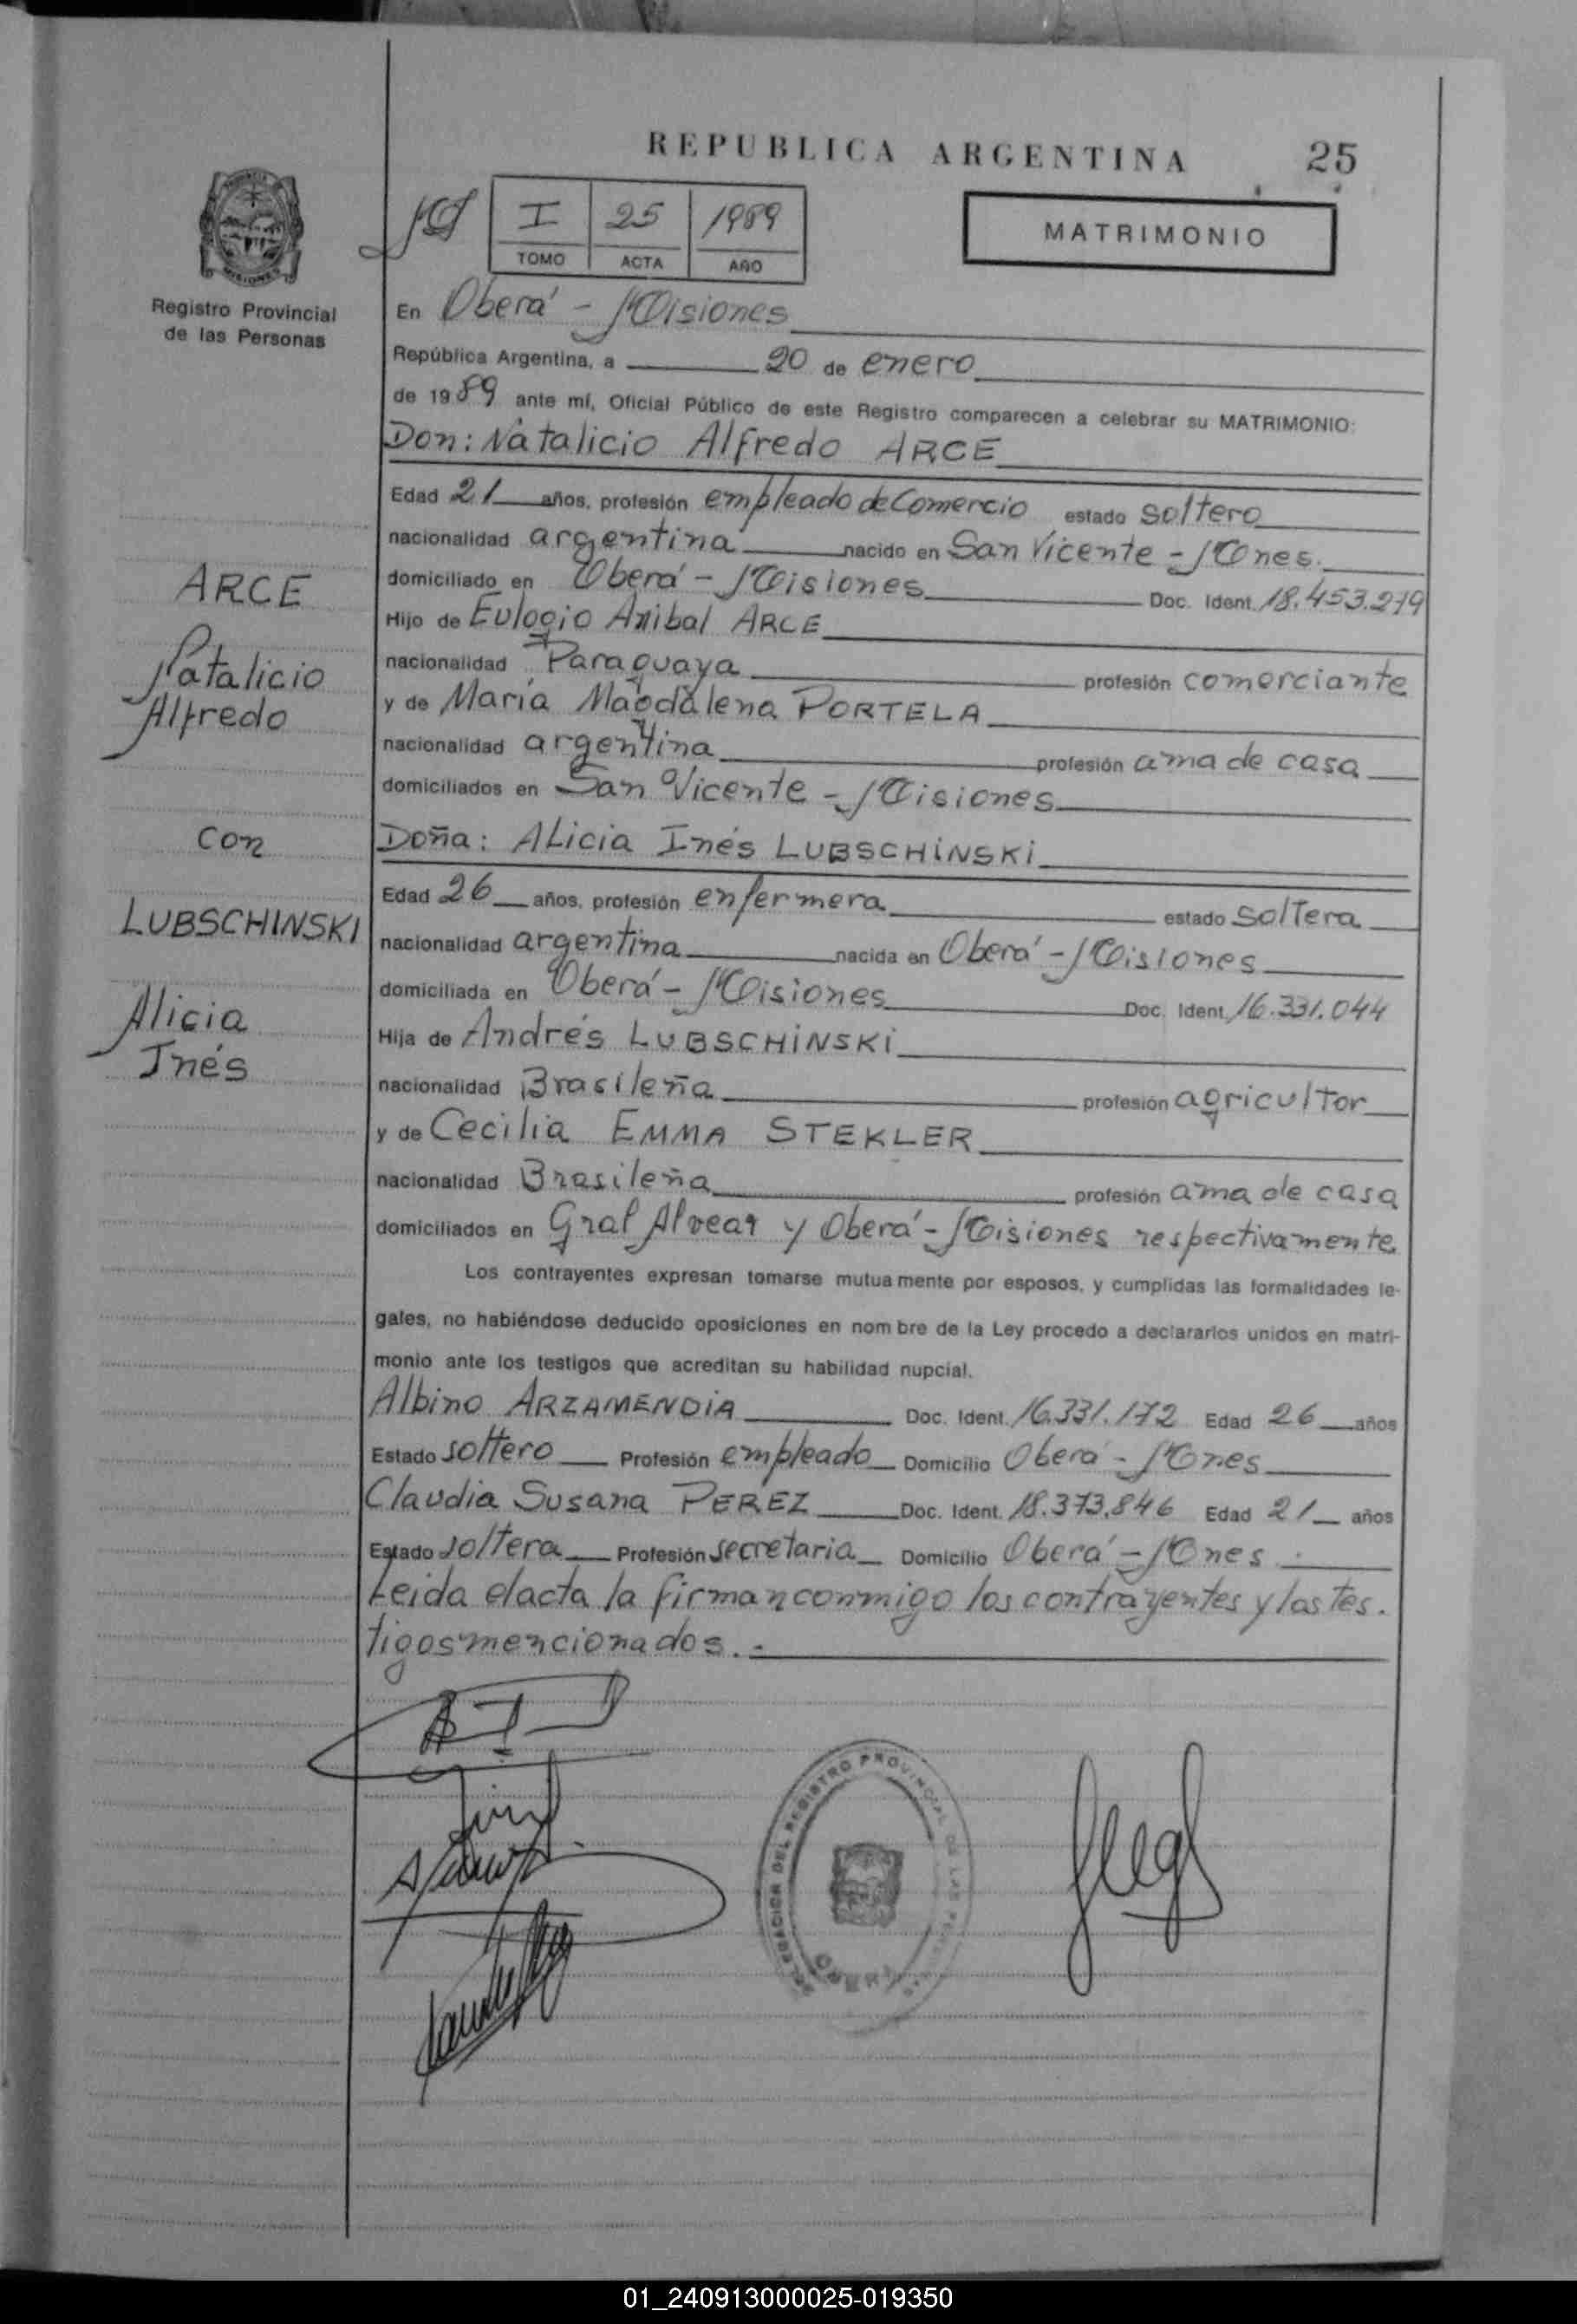 REPUBLICA ARGENTINA 25
I 25 1989
TOMO ACTA AÑO
MATRIMONIO
Registro Provincial
de las Personas
En Oberá - Misiones
República Argentina, a 20 de enero
de 1989 ante mí, Oficial Público de este Registro comparecen a celebrar su MATRIMONIO:
Don: Natalicio Alfredo ARCE
Edad 21 años, profesión empleado de Comercio estado soltero
nacionalidad argentina nacido en San Vicente - Mnes.
domiciliado en Oberá - Misiones Doc. Ident. 18.453.279
Hijo de Eulogio Anibal ARCE
nacionalidad Paraguaya profesión comerciante
y de María Magdalena PORTELA
nacionalidad argentina profesión ama de casa
domiciliados en San Vicente - Misiones
Doña: Alicia Inés LUBSCHINSKI
Edad 26 años, profesión enfermera estado soltera
nacionalidad argentina nacida en Oberá - Misiones
domiciliada en Oberá - Misiones Doc. Ident. 16.331.044
Hija de Andrés LUBSCHINSKI
nacionalidad Brasileña profesión agricultor
y de Cecilia EMMA STEKLER
nacionalidad Brasileña profesión ama de casa
domiciliados en Gral Alvear y Oberá - Misiones respectivamente
Los contrayentes expresan tomarse mutuamente por esposos, y cumplidas las formalidades le-
gales, no habiéndose deducido oposiciones en nombre de la Ley procedo a declararlos unidos en matri-
monio ante los testigos que acreditan su habilidad nupcial.
Albino ARZAMENDIA Doc. Ident. 16.331.172 Edad 26 años
Estado soltero Profesión empleado Domicilio Oberá - Mnes
Claudia Susana PEREZ Doc. Ident. 18.373.846 Edad 21 años
Estado soltera Profesión secretaria Domicilio Oberá - Mnes.
Leida el acta la firman conmigo los contrayentes y los tes.
tigos mencionados. -
ARCE
Natalicio
Alfredo
con
LUBSCHINSKI
Alicia
Inés
DELEGACION DEL REGISTRO PROVINCIAL DE LAS PERSONAS
OBERA
01_240913000025-019350